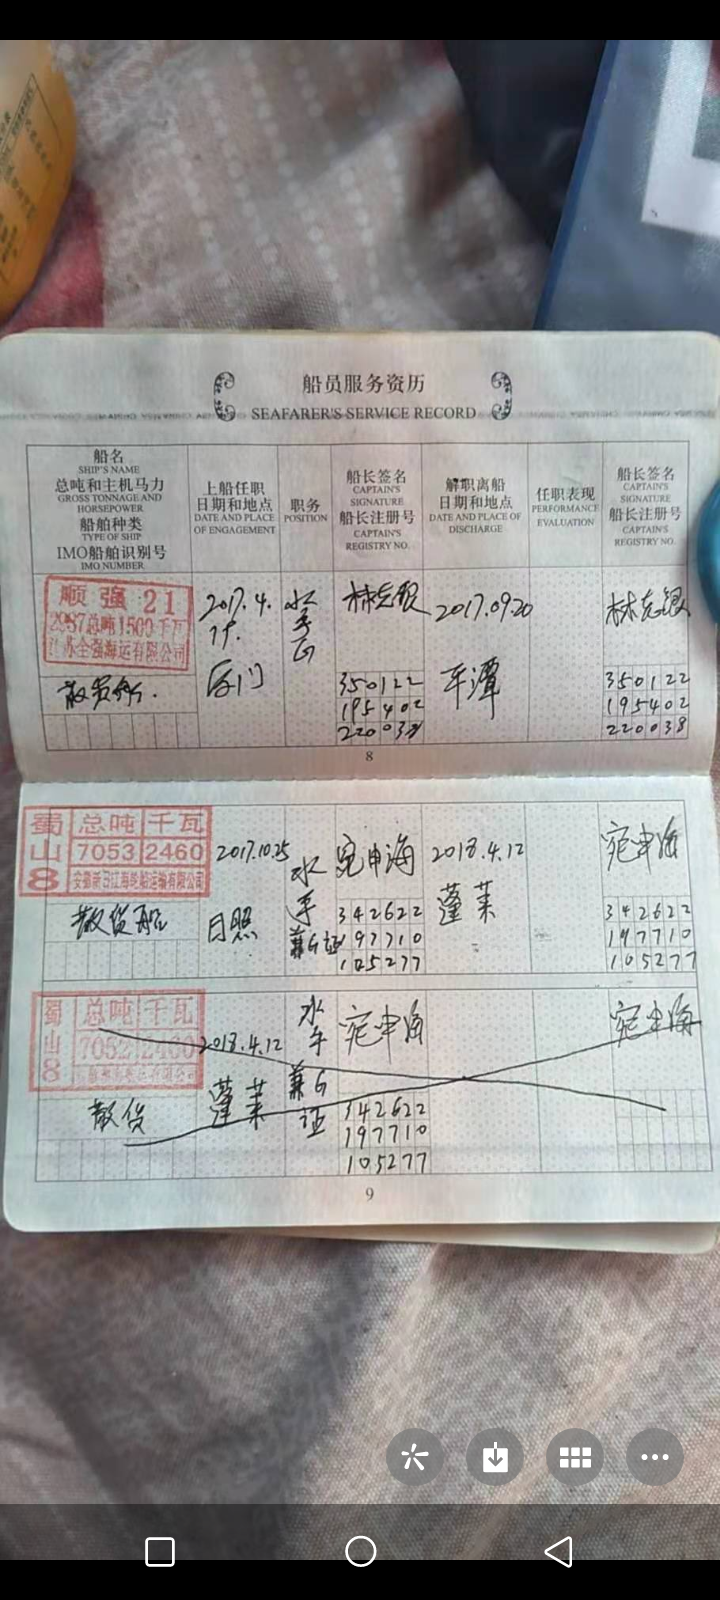 船员服务资历
SEAFARER'S SERVICE RECORD
船名
SHIP'S NAME
总吨和主机马力
GROSS TONNAGE AND
HORSEPOWER
船舶种类
TYPE OF SHIP
IMO船舶识别号
IMO NUMBER
上船任职
日期和地点
DATE AND PLACE
OF ENGAGEMENT
职务
POSITION
船长签名
CAPTAIN'S
SIGNATURE
船长注册号
CAPTAIN'S
REGISTRY NO.
解职离船
日期和地点
DATE AND PLACE OF
DISCHARGE
任职表现
PERFORMANCE
EVALUATION
船长签名
CAPTAIN'S
SIGNATURE
船长注册号
CAPTAIN'S
REGISTRY NO.
顺强21
2987总吨1500千瓦
江苏全强海运有限公司
散货船.
2017.4.
19.
厦门
水
手
350122
195402
220038
2017.09.20
平潭
350122
195402
220038
8
蜀山8
总吨 千瓦
7053 2460
散货船
2017.10.25
日照
水
手
兼G证
宛申海
342622
197710
105277
2018.4.12
蓬莱
宛申海
342622
197710
105277
蜀山8
总吨 千瓦
7052 2460
散货
2018.4.12
蓬莱
水
手
兼G
证
宛申海
342622
197710
105277
宛申海
9